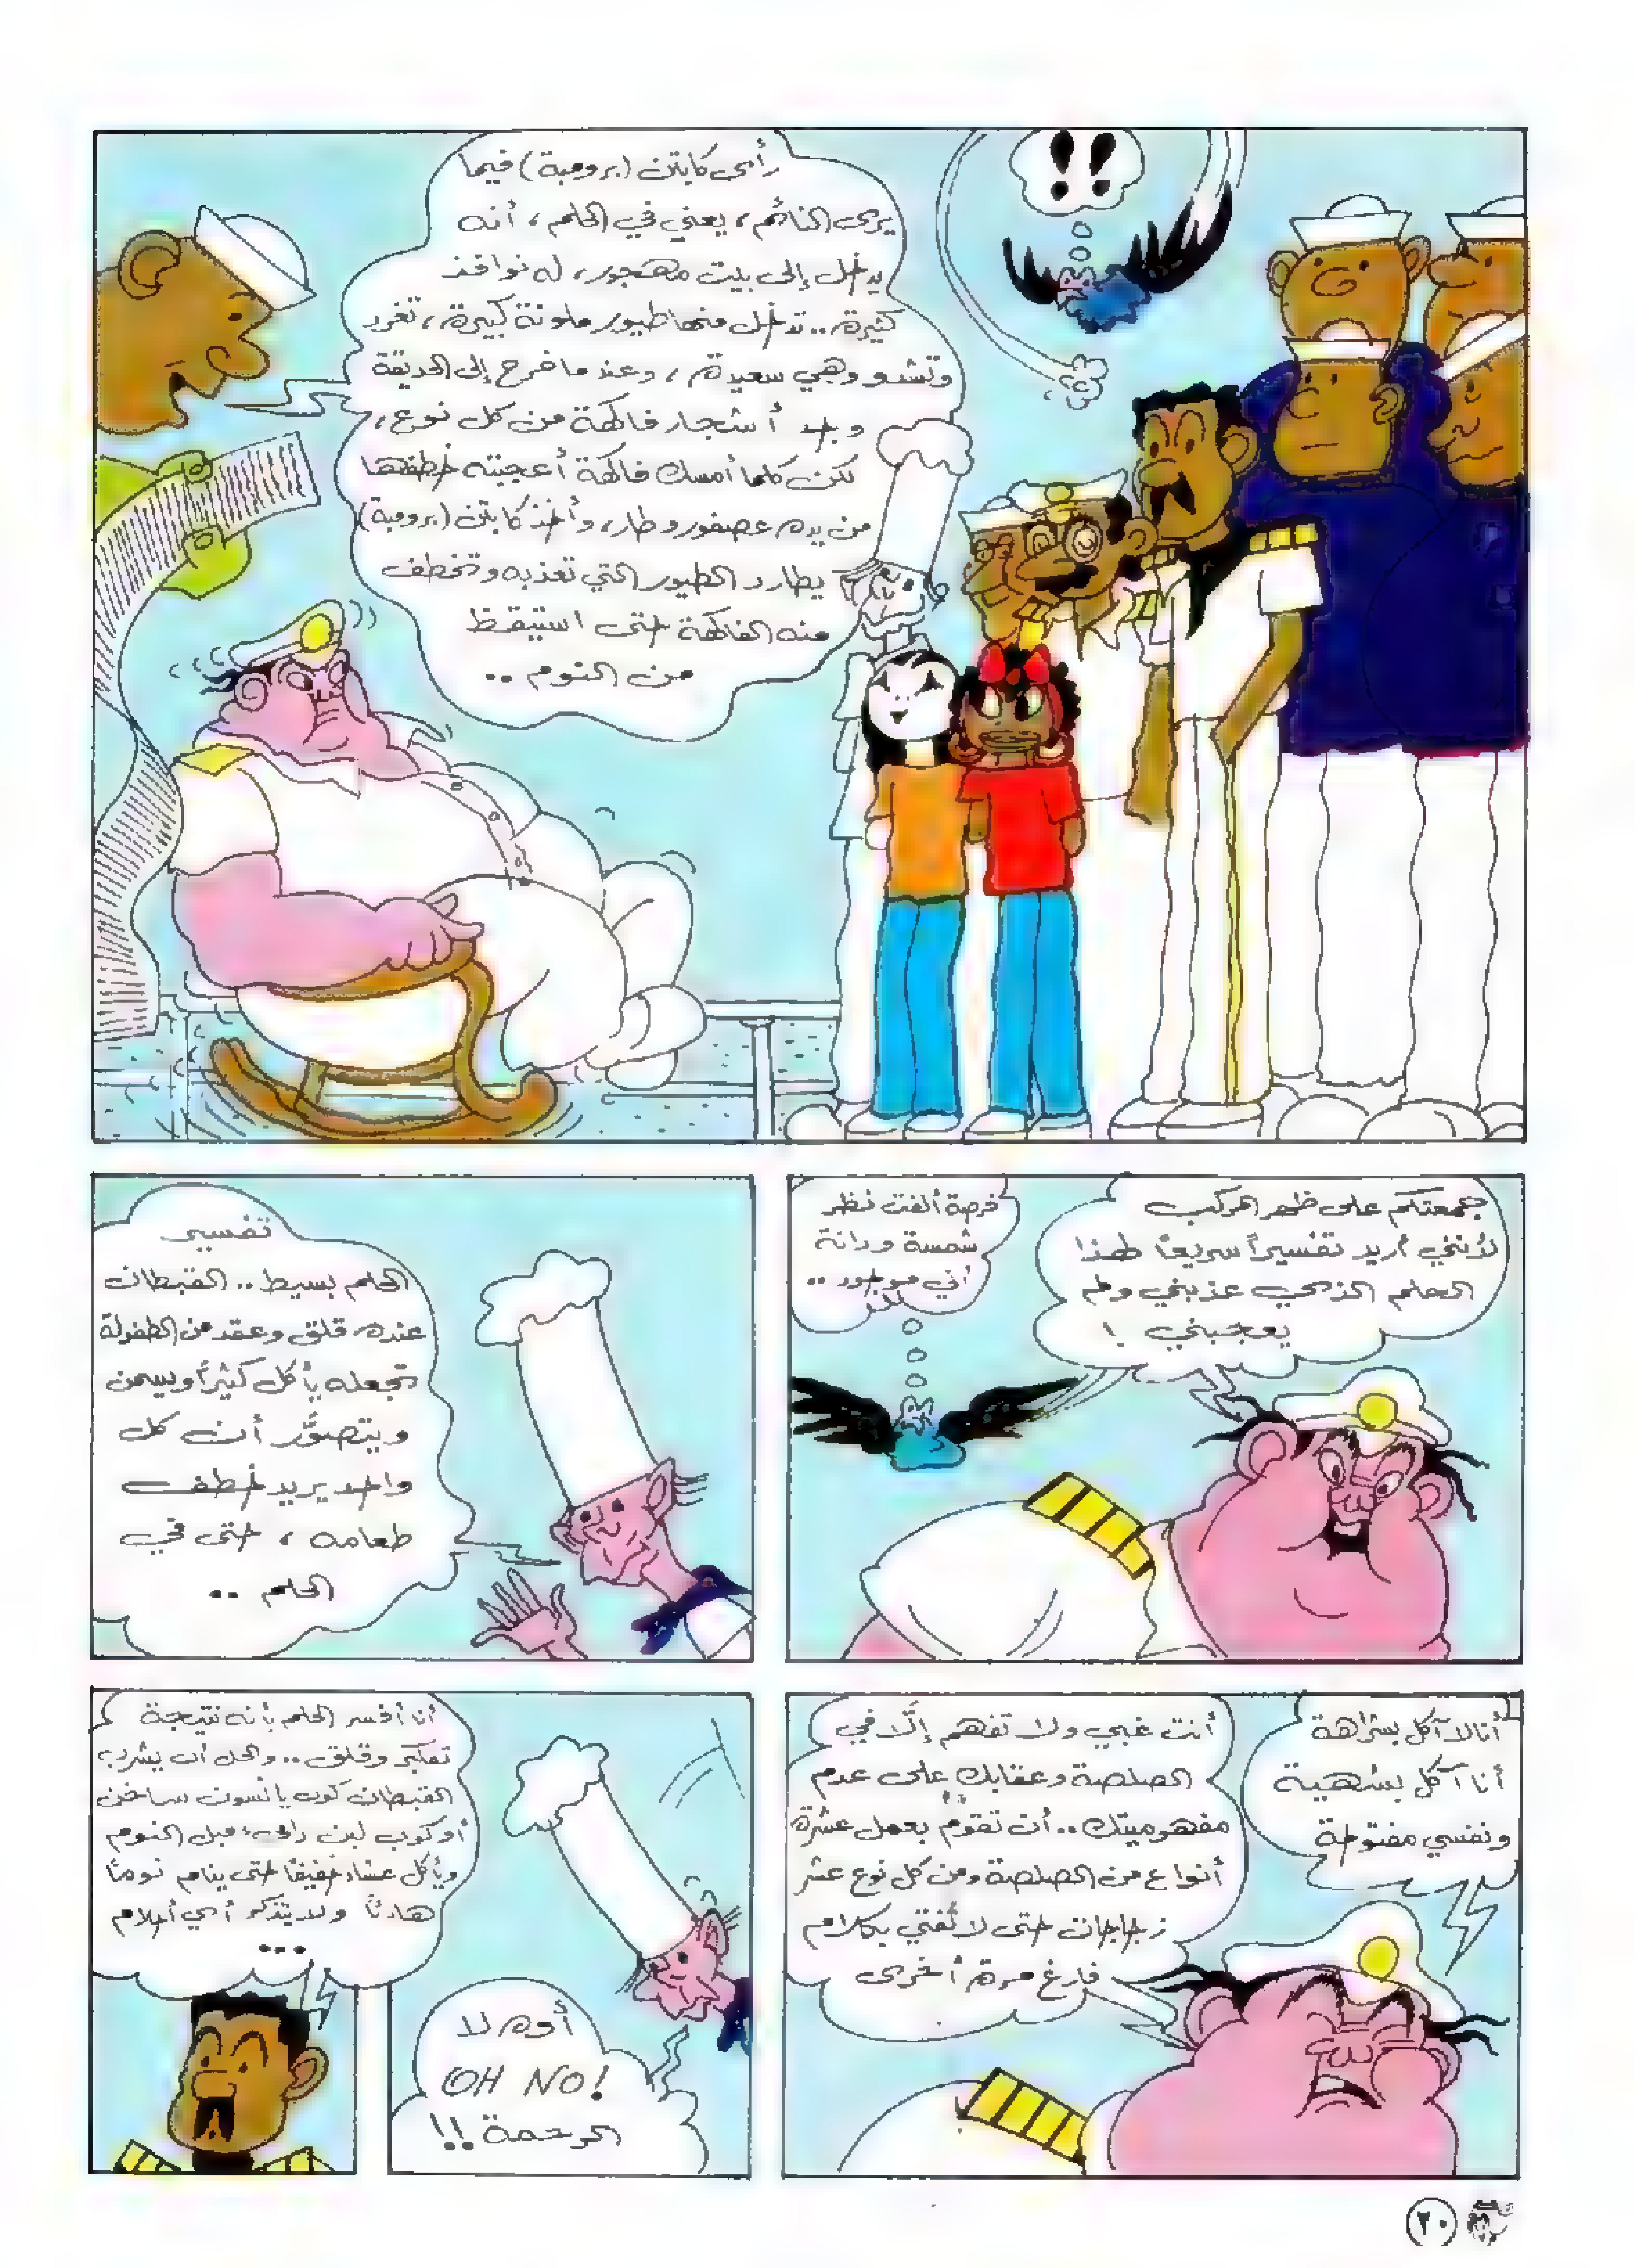 رأى كابتن (برومبة) فيما
يرى النائم، يعني في الحلم، أنه
يدخل إلى بيت مهجور، له نوافذ
كثيرة.. تدخل منها طيور ملونة كبيرة، تغرد
وتشدو وهي سعيدة، وعندما خرج إلى الحديقة
وجد أشجار فاكهة من كل نوع،
لكن كلما أمسك فاكهة أعجبته خطفها
من يده عصفور وطار، وأخذ كابتن (برومبة)
يطارد الطيور التي تعذبه وتخطف
منه الفاكهة حتى استيقظ
من النوم ..
!!
جمعتكم على ظهر المركب
لأنني أريد تفسيراً سريعاً لهذا
الحلم الذي عذبني ولم
يعجبني !
فرصة ألفت نظر
شمسة ودانة
أني موجود ..
تفسير
الحلم بسيط .. القبطان
عنده قلق وعقد من الطفولة
تجعله يأكل كثيراً ويسمن
ويتصوَّر أن كل
واحد يريد خطف
طعامه ، حتى في
الحلم ..
أنا لا آكل بشراهة
أنا آكل بشهية
ونفسي مفتوحة
أنت غبي ولا تفهم إلَّا في
الصلصة وعقابك على عدم
مفهوميتك .. أن تقوم بعمل عشرة
أنواع من الصلصة ومن كل نوع عشر
زجاجات حتى لا تُفتي بكلام
فارغ مرة أخرى
أوه لا
OH NO!
الرحمة !!
أنا أفسر الحلم بأنه نتيجة
تفكير وقلق .. والحل أن يشرب
القبطان كوب يانسون ساخن
أو كوب لبن دافئ قبل النوم
ويأكل عشاء خفيفاً حتى ينام نوماً
هادئاً ولا يتذكر أي أحلام
...
٢٠